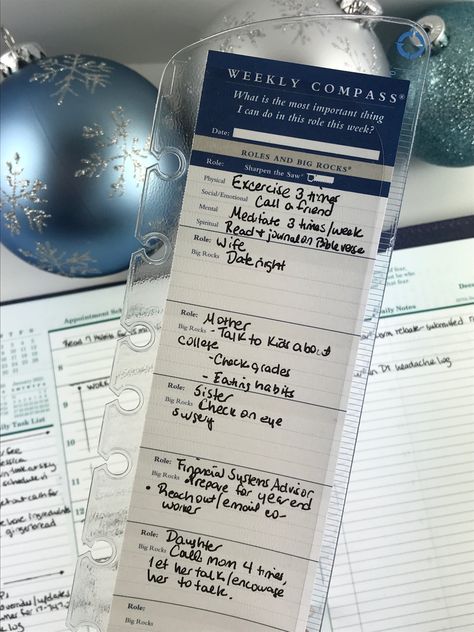 WEEKLY COMPASS®
What is the most important thing
I can do in this role this week?
Date:
ROLES AND BIG ROCKS®
Role: Sharpen the Saw®
Physical Excercise 3 times
Social/Emotional Call a friend
Mental Meditate 3 times/week
Spiritual Read & journal on Bible verse
Role: Wife
Big Rocks Date night
Role: Mother
Big Rocks - Talk to kids about
college
- Check grades
- Eating habits
Role: Sister
Big Rocks Check on eye
surgery
Role: Financial Systems Advisor
Big Rocks • Prepare for year end
• Reach out/email co-
worker
Role: Daughter
Big Rocks Call mom 4 times,
let her talk/encourage
her to talk.
Role:
Big Rocks
Appointment
Daily Task List
Daily Notes
headache log
gingerbread
9
10
11
12
1